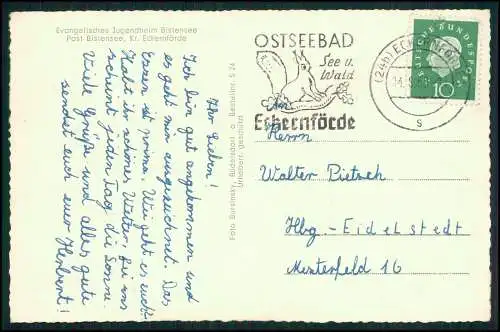 Evangelisches Jugendheim Bistensee
Post Bistensee, Kr. Eckernförde
Ihr Lieben!
Ich bin gut angekommen und
es geht mir ausgezeichnet. Das
Essen ist prima. Wie geht es euch?
Habt ihr schönes Wetter, bei uns
scheint jeden Tag die Sonne.
Viele Grüße und alles gute
sendet euch euer Herbert!
Foto Bursinsky, Büdelsdorf a Bestellnr. S 24
Urheberr. geschützt
OSTSEEBAD
See u.
Wald
Eckernförde
(24b) ECKERNFÖRDE
s
DEUTSCHE BUNDESPOST
10
An
Herrn
Walter Pietsch
Hbg. - Eidelstedt
Münterfeld 16